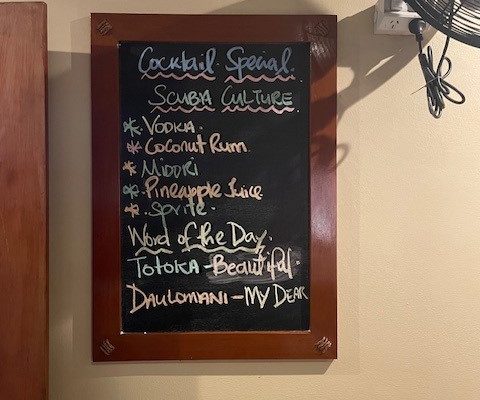 Cocktail Special.
SCUBA CULTURE
* VODKA.
* COCONUT RUM.
* MIDORI
* PINEAPPLE JUICE
* SPRITE.
Word of the Day.
TOTOKA - Beautiful.
DAULOMANI - MY DEAR